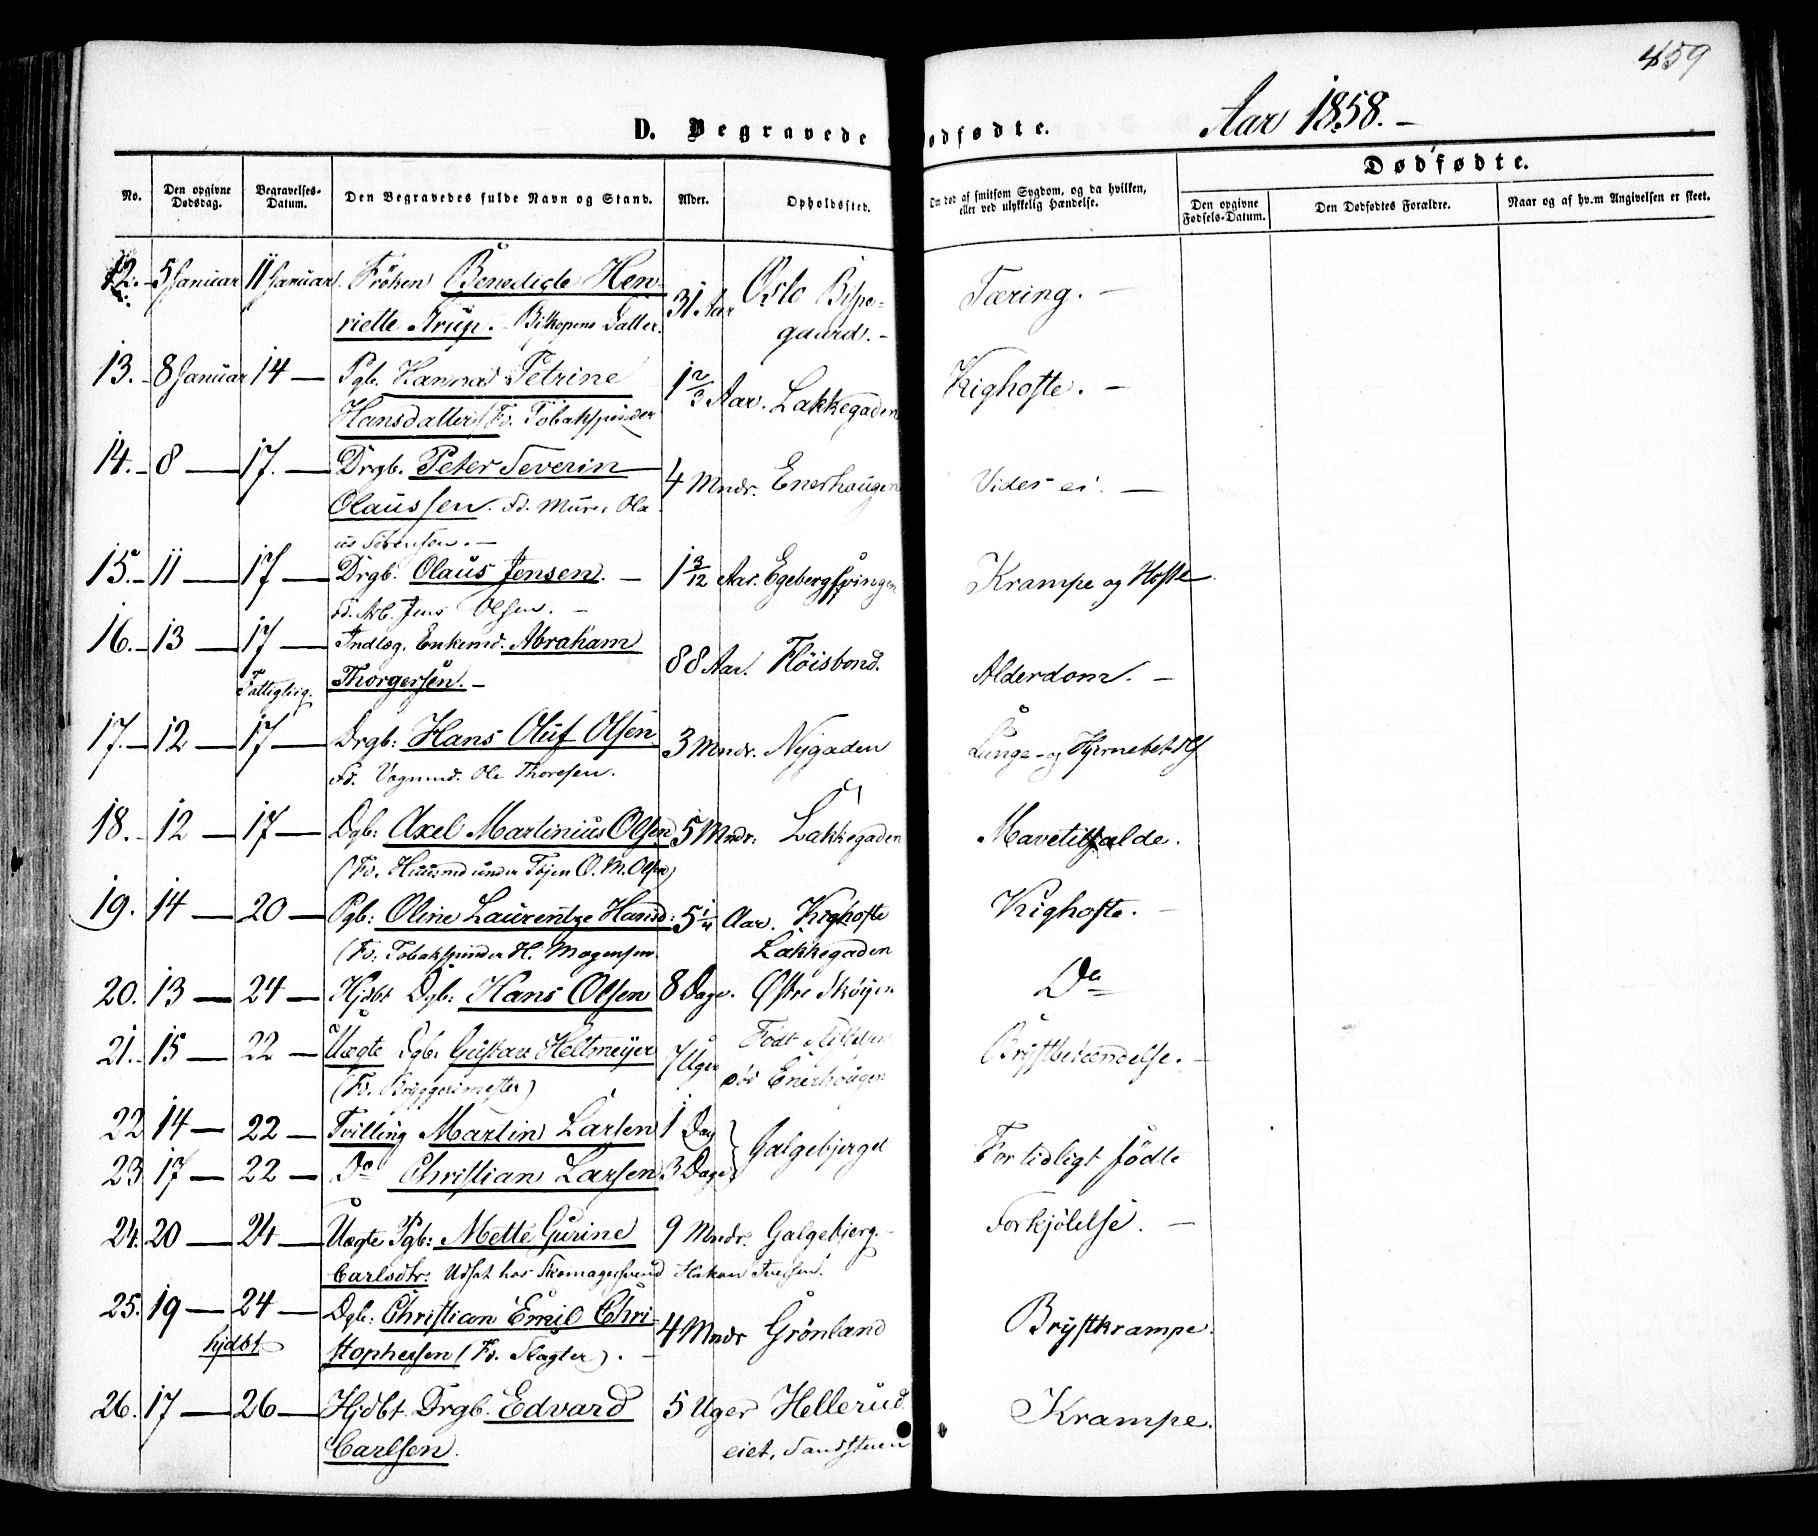 459
D. Begravede Dødfødte.
Aar 1858.-
Dødfødte.
No.
Den opgivne Dødsdag.
Begravelses-Datum.
Den Begravedes fulde Navn og Stand.
Alder.
Opholdssted.
Om død af smitsom Sygdom, og da hvilken, eller ved ulykkelig Hændelse.
Den opgivne Fødsels-Datum.
Den Dødfødtes Forældre.
Naar og af hv.m Angivelsen er skeet.
12.- 5 Januar 11 Januar. Fröken Benedicte Hen- 31 Aar Oslo Bispe- Tæring. -
riette Arup. - Biskopens Datter. gaard. -
13.- 8 Januar 14 - Pgb. Hanna Petrine 1 2/3 Aar. Lakkegaden Kighoste. -
Hansdatter (Fd. Tobakspinder
14.- 8 - 17. - Drgb. Peter Severin 4 Mndr. Enerhaugen Vides ei. -
Olaussen. Fd. Murer Ola-
us Sörensen. -
15.- 11 - 17 - Drgb. Olaus Jensen. - 1 3/12 Aar. Egebergspingen Krampe og Hoste.
Fd. Arb. Jens Olsen. -
16.- 13 - 17 - Indlæg. Enkemd. Abraham 88 Aar. Flöisbond. Alderdom. -
Fattiglig. Thorgersen. -
17.- 12 - 17 - Drgb: Hans Oluf Olsen. 3 Mndr. Nygaden Lunge- og Hjernebet.
Fd. Vognmd. Ole Thoresen.
18.- 12 - 17 - Dgb: Axel Martinius Olsen 5 Mndr: Lakkegaden Mavetilfalde.
(Fd. Huusmd under Töjen O. M. Olsen)
19. 14 - 20 - Pgb: Oline Laurentze Hansd: 5 1/4 Aar. Kighoste Kighoste. -
(Fd. Tobakspinder H. Mogensen. Lakkegaden
20. 13 - 24 - Hjdbt Dgb: Hans Olsen 8 Dage. Østre Sköyen Do
21.- 15 - 22 - Uægte Dgb: Gustav Heltmeyer 7 Uger Födt Brystbetændelse. -
(Fd. Bryggerimester) död Enerhougen
22 14 - 22 - Tvilling Martin Larsen 1 Dag Galgebjerget For tidligt födte
23 17 - 22 - Do Christian Larsen 3 Dage
24. 20 - 24 - Uægte Pgb: Mette Gurine 9 Mndr. Galgebjerg. - Forkjölelse. -
Carlsdtr: Udsat hos Skomagersvend Hakon Iversen.
25. 19 - 24 - Dgb: Christian Emil Chri- 4 Mndr Grönland Brystkrampe.
hjdbt. stophersen (Fd. Slagter). -
26. 17 - 26 - Hjdbt Drgb. Edvard 5 Uger Hellerud Krampe.
Carlsen. eiet, Sandstuen